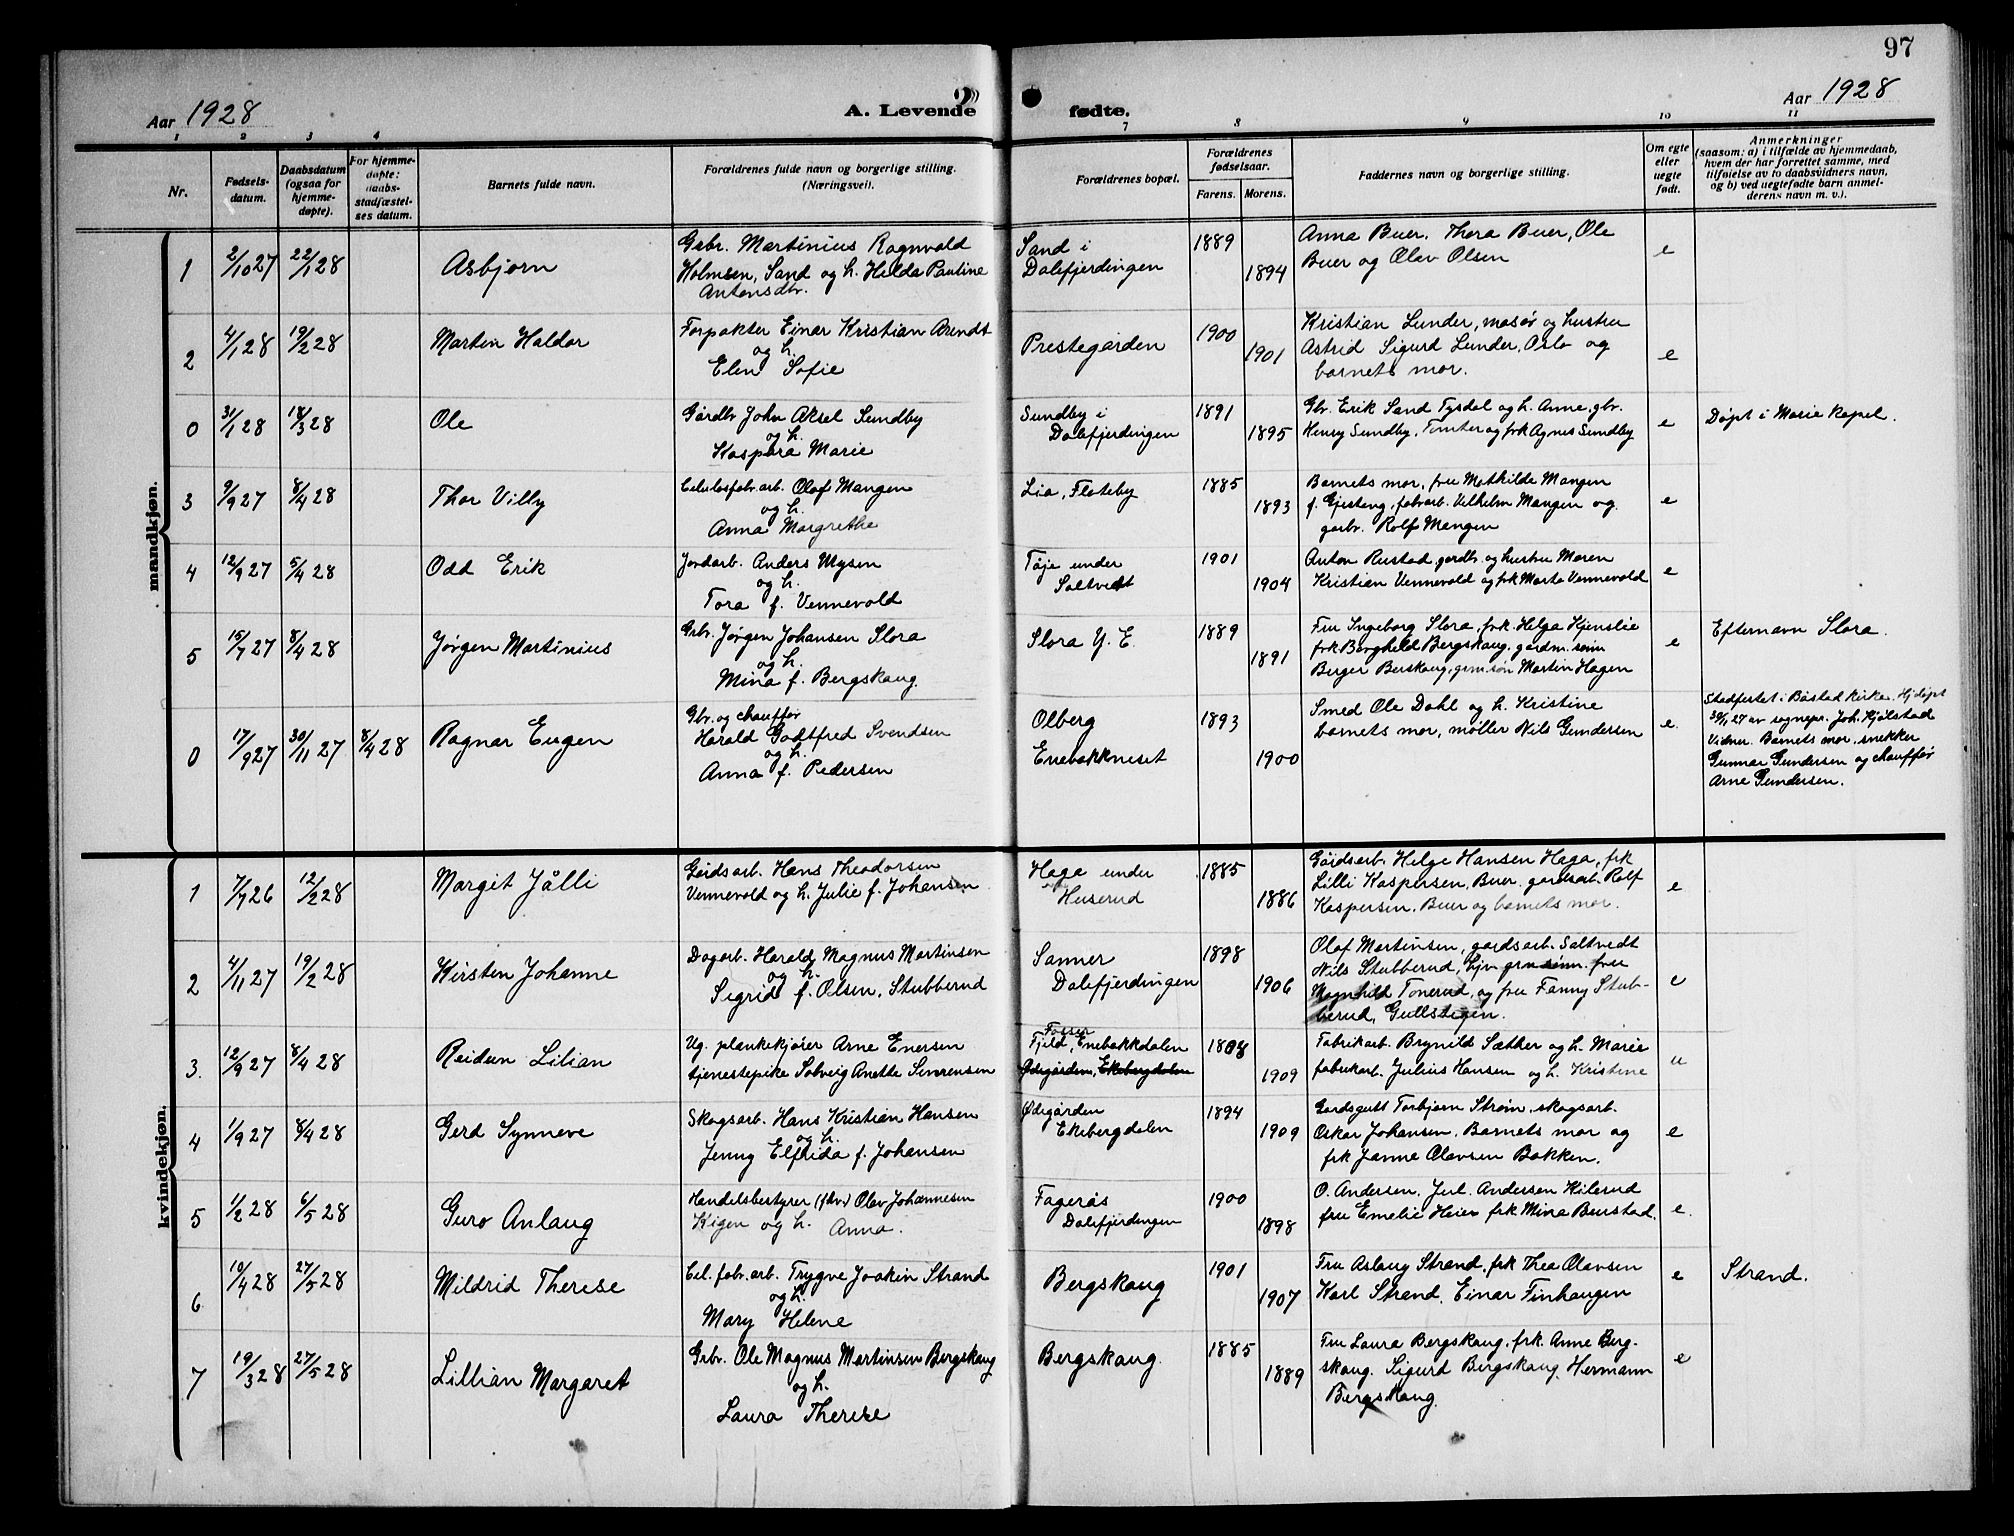 97
Aar 1928
A. Levende
fødte.
Aar 1928
1 2 3 4 7 8 9 10 11
Nr.
Fødsels-
datum.
Daabsdatum
(ogsaa for
hjemme-
døpte).
For hjemme-
døpte:
daabs-
stadfæstel-
ses datum.
Barnets fulde navn.
Forældrenes fulde navn og borgerlige stilling.
(Næringsvei).
Forældrenes bopæl.
Forældrenes
fødselsaar.
Farens. Morens.
Faddernes navn og borgerlige stilling.
Om egte
eller
uegte
født.
Anmerkninger
(saasom: a) i tilfælde av hjemmedaab,
hvem der har forrettet samme, med
tilføielse av to daabsvidners navn,
og b) ved uegtefødte barn anmel-
derens navn m. v.).
mandkjøn.
1 2/10 27 22/1 28 Asbjørn
Grbr. Martinius Ragnvald
Holmsen, Sand og h. Hilda Pauline
Antonsdtr.
Sand i
Dalefjerdingen
1889
1894
Anna Buer, Thora Buer, Ole
Buer og Olav Olsen
e
2 4/1 28 19/2 28 Marten Haldor
Forpakter Einar Kristian Arendt
og h.
Elen Sofie
Prestegården
1900
1901
Kristian Lunder, masør og hustru
Astrid Sigurd Lunder, Oslo og
barnets mor.
e
0 31/1 28 18/3 28 Ole
Gårdbr John Aksel Sundby
og h.
Kaspara Marie
Sundby i
Dalefjerdingen
1891
1895
Gbr. Erik Sand Tysdal og h. Anne, gbr.
Henry Sundby, Tomter og frk Agnes Sundby
e
Døpt i Marie kapel.
3 9/9 27 8/4 28 Thor Villy
Celulosfabr.arb. Olaf Mangen
og h.
Anna Margrethe
Lia, Flateby
1885
1893
Barnets mor, fru Mathilde Mangen
f. Gjestang, fabrarb. Vilhelm Mangen og
garbr. Rolf Mangen
e
4 12/9 27 5/4 28 Odd Erik
Jordarb. Anders Mysen
og h.
Tora f. Vennevold
Tøje under
Saltvedt
1901
1904
Anton Rustad gardbr. og hustru Maren
Kristian Vennevold og frk Marta Vennevold
e
5 15/7 27 8/4 28 Jørgen Martinius
Grbr. Jørgen Johansen Slora
og h.
Mina f. Bergskaug
Slora Y. E.
1889
1891
Fru Ingeborg Slora, frk. Helga Kjenslie
frk Borghild Bergskaug, gardm.sønn
Birger Berskaug, grm.søn Martin Hagen
e
Efternavn Slora.
0 17/9 27 30/11 27 8/4 28 Ragnar Eugen
Gbr. og chauffør
Harald Godtfred Svendsen
og h.
Anna f. Pedersen
Olberg
Enebakkneset
1893
1900
Smed Ole Dahl og h. Kristine
barnets mor, møller Nils Gundersen
e.
Stadfestet i Båstad kirke. Hj.døpt
30/11 27 av sognepr. Joh. Kjølstad
Vidner. Barnets mor, snekker
Gunnar Gundersen og chauffør
Arne Gundersen.
kvindekjøn.
1 7/7 26 12/2 28 Margit Jålli
Gårdsarb. Hans Theodorsen
Vennevold og h. Julie f. Johansen
Haga under
Huserud
1885
1886
Gårdsarb. Helge Hansen Haga, frk
Lilli Kaspersen, Buer, gardsarb. Rolf
Kaspersen, Buer og barnets mor.
e
2 4/11 27 19/2 28 Kirsten Johanne
Dagarb. Harald Magnus Martinsen
og h.
Sigrid f. Olsen, Stubberud
Sanner
Dalefjerdingen
1898
1906
Olaf Martinsen, gardsarb. Saltvedt
Nils Stubberud, hjv. grm.sønn. fru
Magnhild Tonerud, og fru Fanny Stub-
berud, Gullstigen.
e
3. 12/9 27 8/4 28 Reidun Lilian
Ug. plankekjører Arne Enersen
tjenestepike Solveig Anette Simensen
Fosser
Fjeld, Enebakkdalen
Ødegården, Ekebergdalen
1908
1909
Fabrikarb. Brynild Sæther og h. Marie
fabrikarb. Julius Hansen og h. Kristine
u
4 1/9 27 8/4 28 Gerd Synneve
Skogsarb. Hans Kristian Hansen
og h.
Jenny Elfrida f. Johansen
Ødegården
Ekebergdalen
1894
1909
Gardsgutt Torbjørn Strøm, skogsarb.
Oskar Johansen, Barnets mor og
frk Janna Olavsen Bakken.
e
5 1/2 28 6/5 28 Guro Anlaug
Handelsbestyrer (fkv.) Olav Johannesen
Kigen og h. Anna.
Fagerås
Dalefjerdingen
1900
1898
O. Andersen, Jul. Andersen Kilerud
fru Emelie Heier frk Mina Buustad.
e.
6. 10/4 28 27/5 28 Mildrid Therese
Cel. fabr. arb. Trygve Joakin Strand
og h.
Mary Helene
Bergskaug
1901
1907
Fru Aslaug Strand, frk Thea Olavsen
Karl Strand, Einar Finhaugen
e
Strand.
7 19/3 28 27/5 28 Lillian Margaret
Grbr. Ole Magnus Martinsen Bergskaug
og h.
Laura Therese
Bergskaug.
1885
1889
Fru Laura Bergskaug, frk. Anne Berg-
skaug. Sigurd Bergskaug, Hermann
Bergskaug.
e